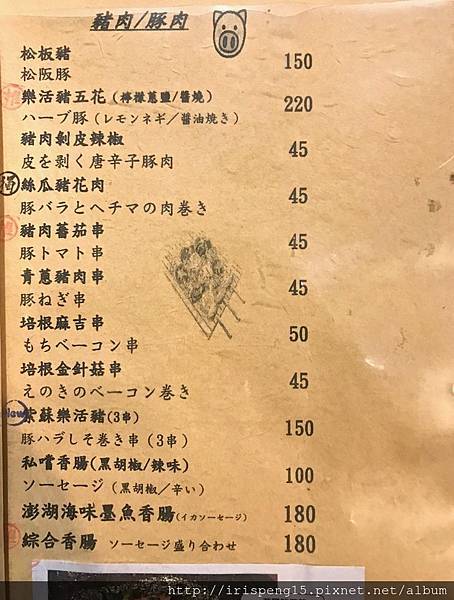 豬肉/豚肉
松板豬
松阪豚
150
樂活豬五花(檸檬蔥鹽/醬燒)
ハーブ豚(レモンネギ/醬油焼き)
220
豬肉剝皮辣椒
皮を剥く唐辛子豚肉
45
絲瓜豬花肉
豚バラとヘチマの肉巻き
45
豬肉蕃茄串
豚トマト串
45
青蔥豬肉串
豚ねぎ串
45
培根麻吉串
もちベーコン串
50
培根金針菇串
えのきのベーコン巻き
45
New
紫蘇樂活豬(3串)
豚ハラしそ巻き串(3串)
150
私嚐香腸(黑胡椒/辣味)
ソーセージ(黒胡椒/辛い)
100
澎湖海味墨魚香腸(イカソーセージ)
180
綜合香腸 ソーセージ盛り合わせ
180
http://irispeng15.pixnet.net/album